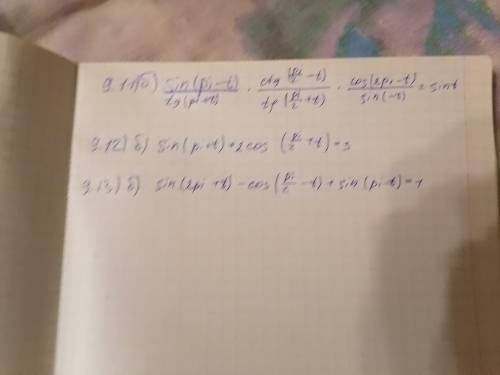 9.11 б) sin(pi-t)/tg(pi+t) · ctg(pi/2-t)/tg(pi/2+t) · cos(2pi-t)/sin(-t) = sint
9.12) б) sin(pi+t)+2cos(pi/2+t)=3
9.13) б) sin(2pi+t)-cos(pi/2-t)+sin(pi-t)=1